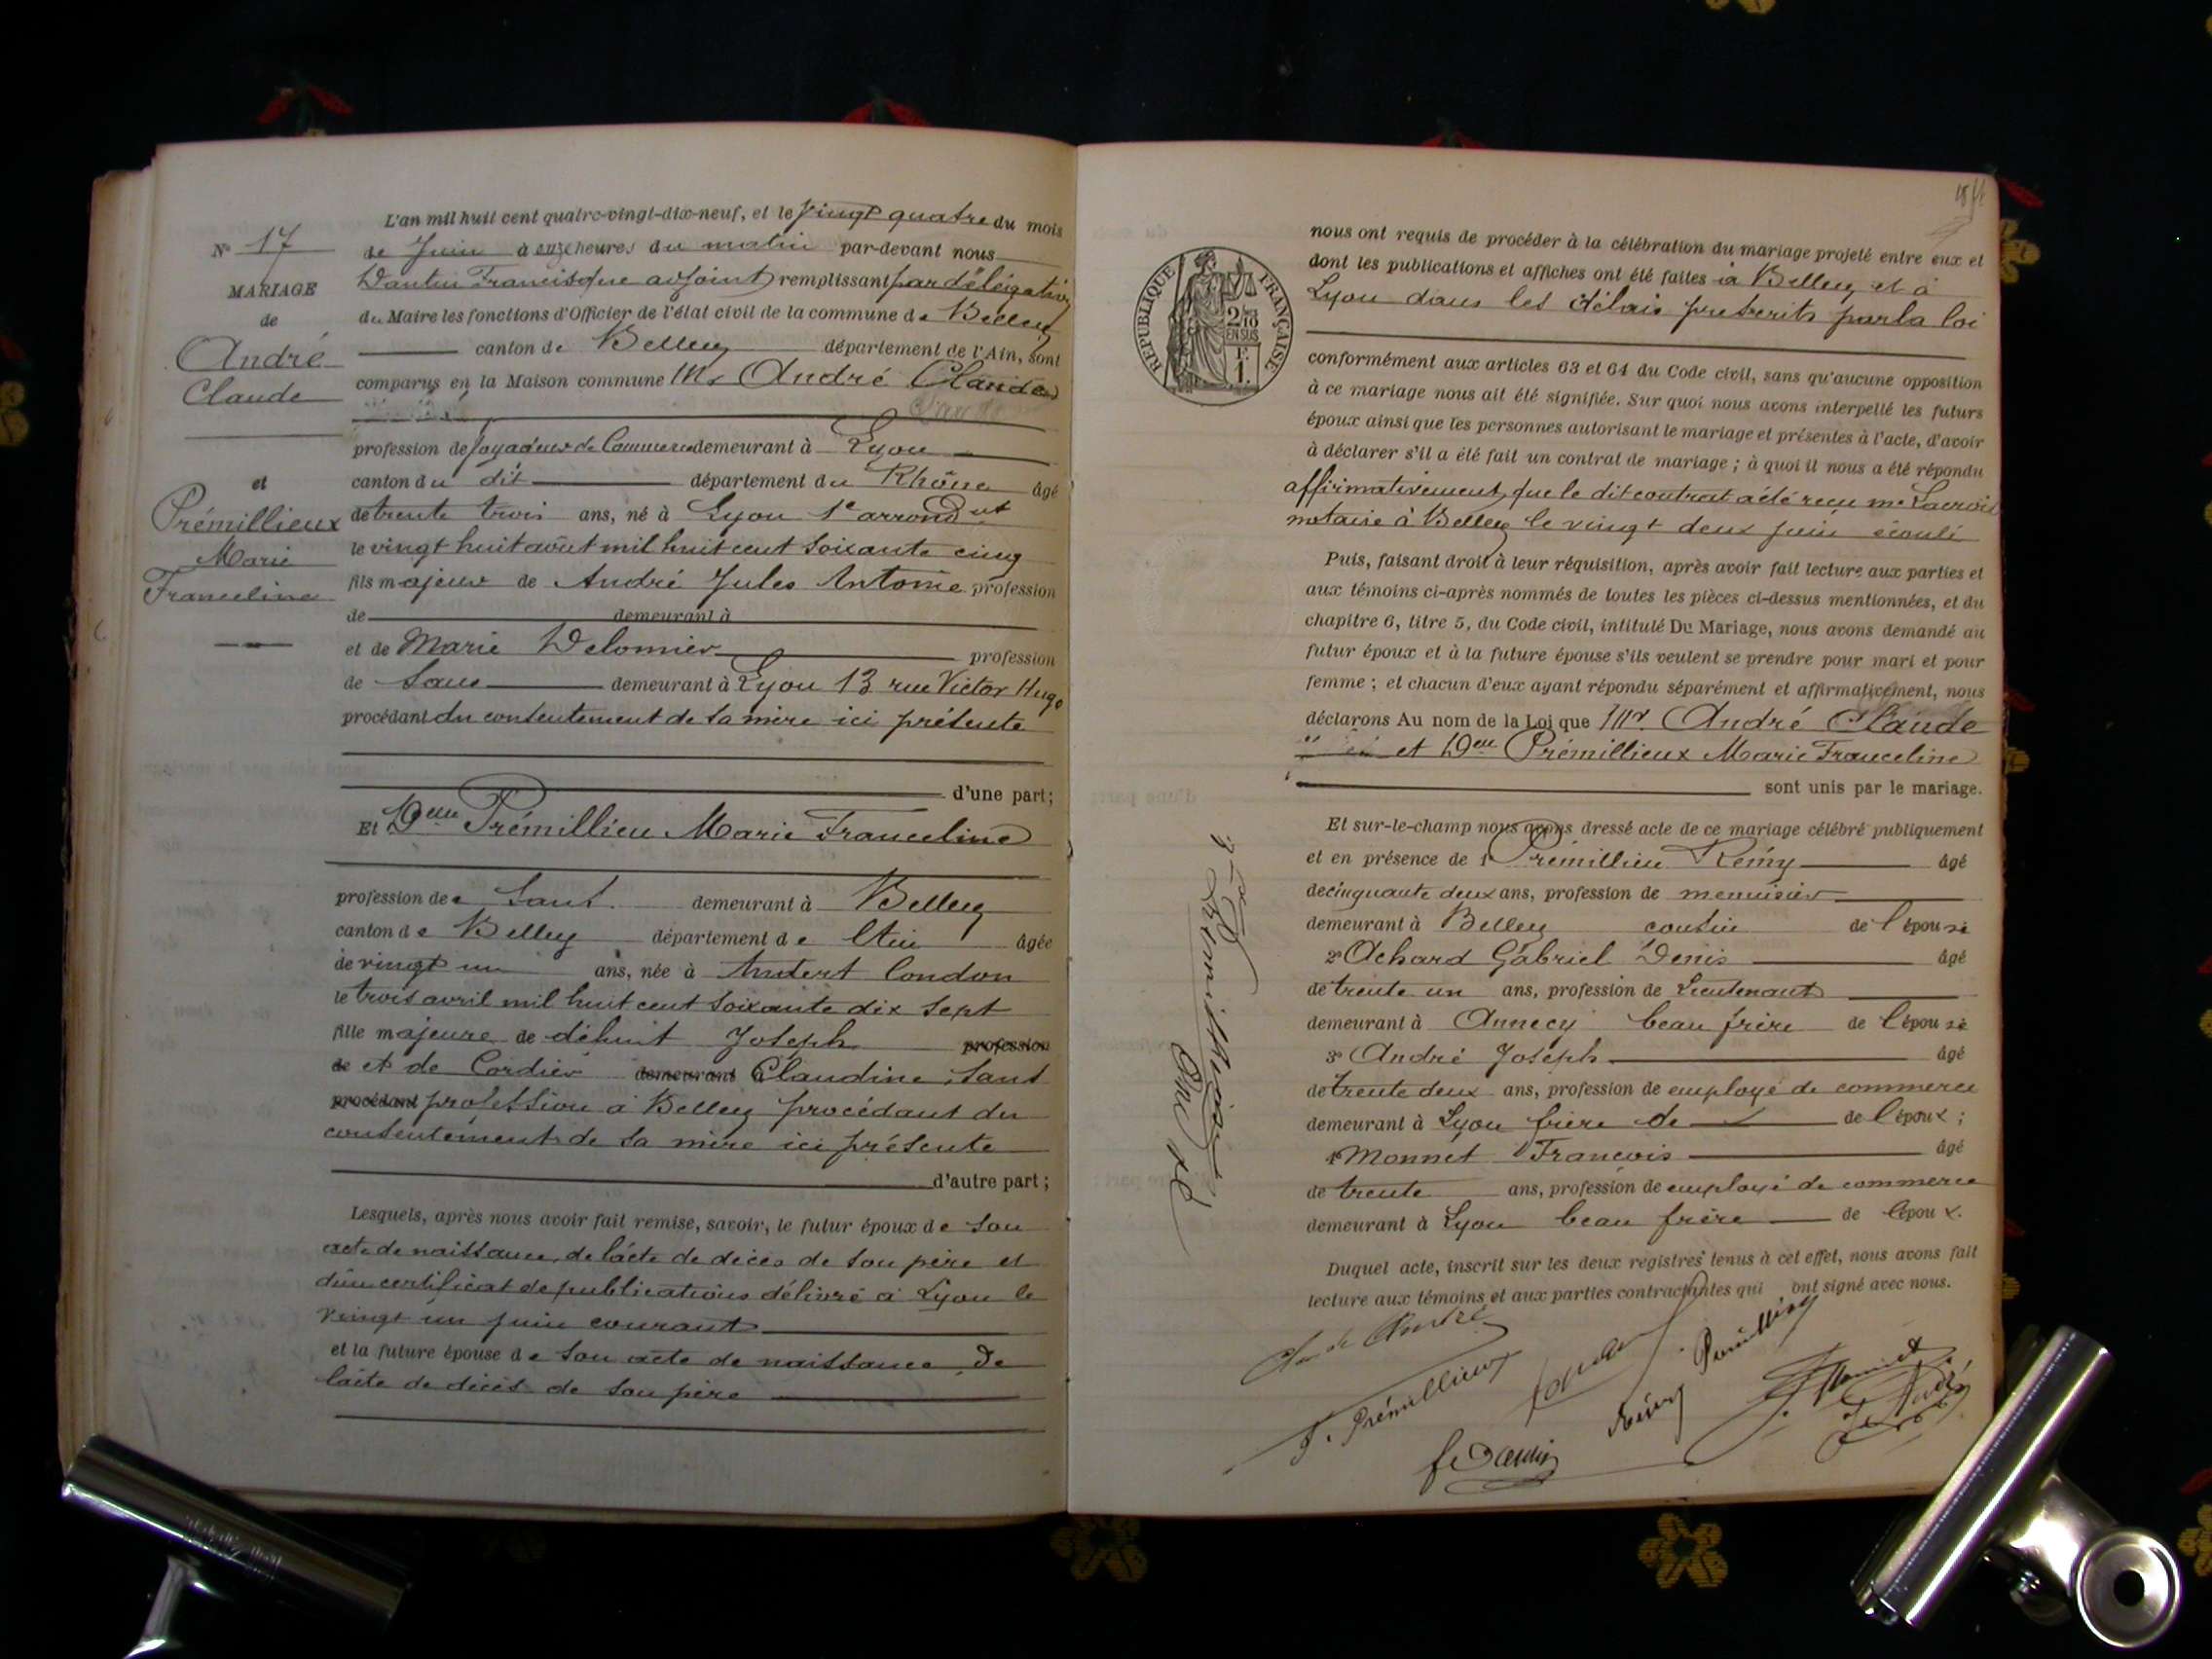 N° 17
MARIAGE
de
André
Claude
et
Prémillieux
Marie
Franceline
L'an mil huit cent quatre-vingt-dix-neuf, et le vingt quatre du mois
de Juin à onze heures du matin par-devant nous
Dantin Francisque adjoint remplissant par délégation
du Maire les fonctions d'Officier de l'état civil de la commune de Belley
canton de Belley département de l'Ain, sont
comparus en la Maison commune Mr André Claude
profession de Voyageur de Commerce demeurant à Lyon
canton du dit département du Rhône âgé
de trente trois ans, né à Lyon 1e arrondt
le vingt huit août mil huit cent soixante cinq
fils majeur de André Jules Antoine profession
de demeurant à
et de Marie Delomier profession
de sans demeurant à Lyon 13 rue Victor Hugo
procédant du consentement de sa mère ici présente
d'une part;
Et Delle Prémillieu Marie Franceline
profession de sans demeurant à Belley
canton de Belley département de l'Ain âgée
de vingt un ans, née à
le trois avril mil huit cent soixante dix sept
fille majeure de défunt Joseph profession
de et de Cordier demeurant à Claudine, sans
procédant profession à Belley procédant du
consentement de sa mère ici présente
d'autre part;
Lesquels, après nous avoir fait remise, savoir, le futur époux de son
acte de naissance, de l'acte de décès de son père et
d'un certificat de publications délivré à Lyon le
vingt un juin courant
et la future épouse de son acte de naissance, de
l'acte de décès de son père
RÉPUBLIQUE FRANÇAISE
2/10
EN SUS
F.
1.
nous ont requis de procéder à la célébration du mariage projeté entre eux et
dont les publications et affiches ont été faites à Belley et à
Lyon dans les délais prescrits par la loi
conformément aux articles 63 et 64 du Code civil, sans qu'aucune opposition
à ce mariage nous ait été signifiée. Sur quoi nous avons interpellé les futurs
époux ainsi que les personnes autorisant le mariage et présentes à l'acte, d'avoir
à déclarer s'il a été fait un contrat de mariage; à quoi il nous a été répondu
affirmativement, que le dit contrat a été reçu me Lacroix
notaire à Belley le vingt deux juin écoulé
Puis, faisant droit à leur réquisition, après avoir fait lecture aux parties et
aux témoins ci-après nommés de toutes les pièces ci-dessus mentionnées, et du
chapitre 6, titre 5, du Code civil, intitulé Du Mariage, nous avons demandé au
futur époux et à la future épouse s'ils veulent se prendre pour mari et pour
femme; et chacun d'eux ayant répondu séparément et affirmativement, nous
déclarons Au nom de la Loi que Mr. André Claude
et Delle Prémillieux Marie Franceline
sont unis par le mariage.
Et sur-le-champ nous avons dressé acte de ce mariage célébré publiquement
et en présence de 1° Prémillieu Rémy âgé
de cinquante deux ans, profession de menuisier
demeurant à Belley cousin de l'épouse
2° Achard Gabriel Denis âgé
de trente un ans, profession de Lieutenant
demeurant à Annecy beau frère de l'épouse
3° André Joseph âgé
de trente deux ans, profession de employé de commerce
demeurant à Lyon frère de de l'époux;
4° Monnet François âgé
de trente ans, profession de employé de commerce
demeurant à Lyon beau frère de l'époux.
Duquel acte, inscrit sur les deux registres tenus à cet effet, nous avons fait
lecture aux témoins et aux parties contractantes qui ont signé avec nous.
Claude André
F. Prémillieux
Rémy Prémillieux
F. Monnet
J. André
f Dantin